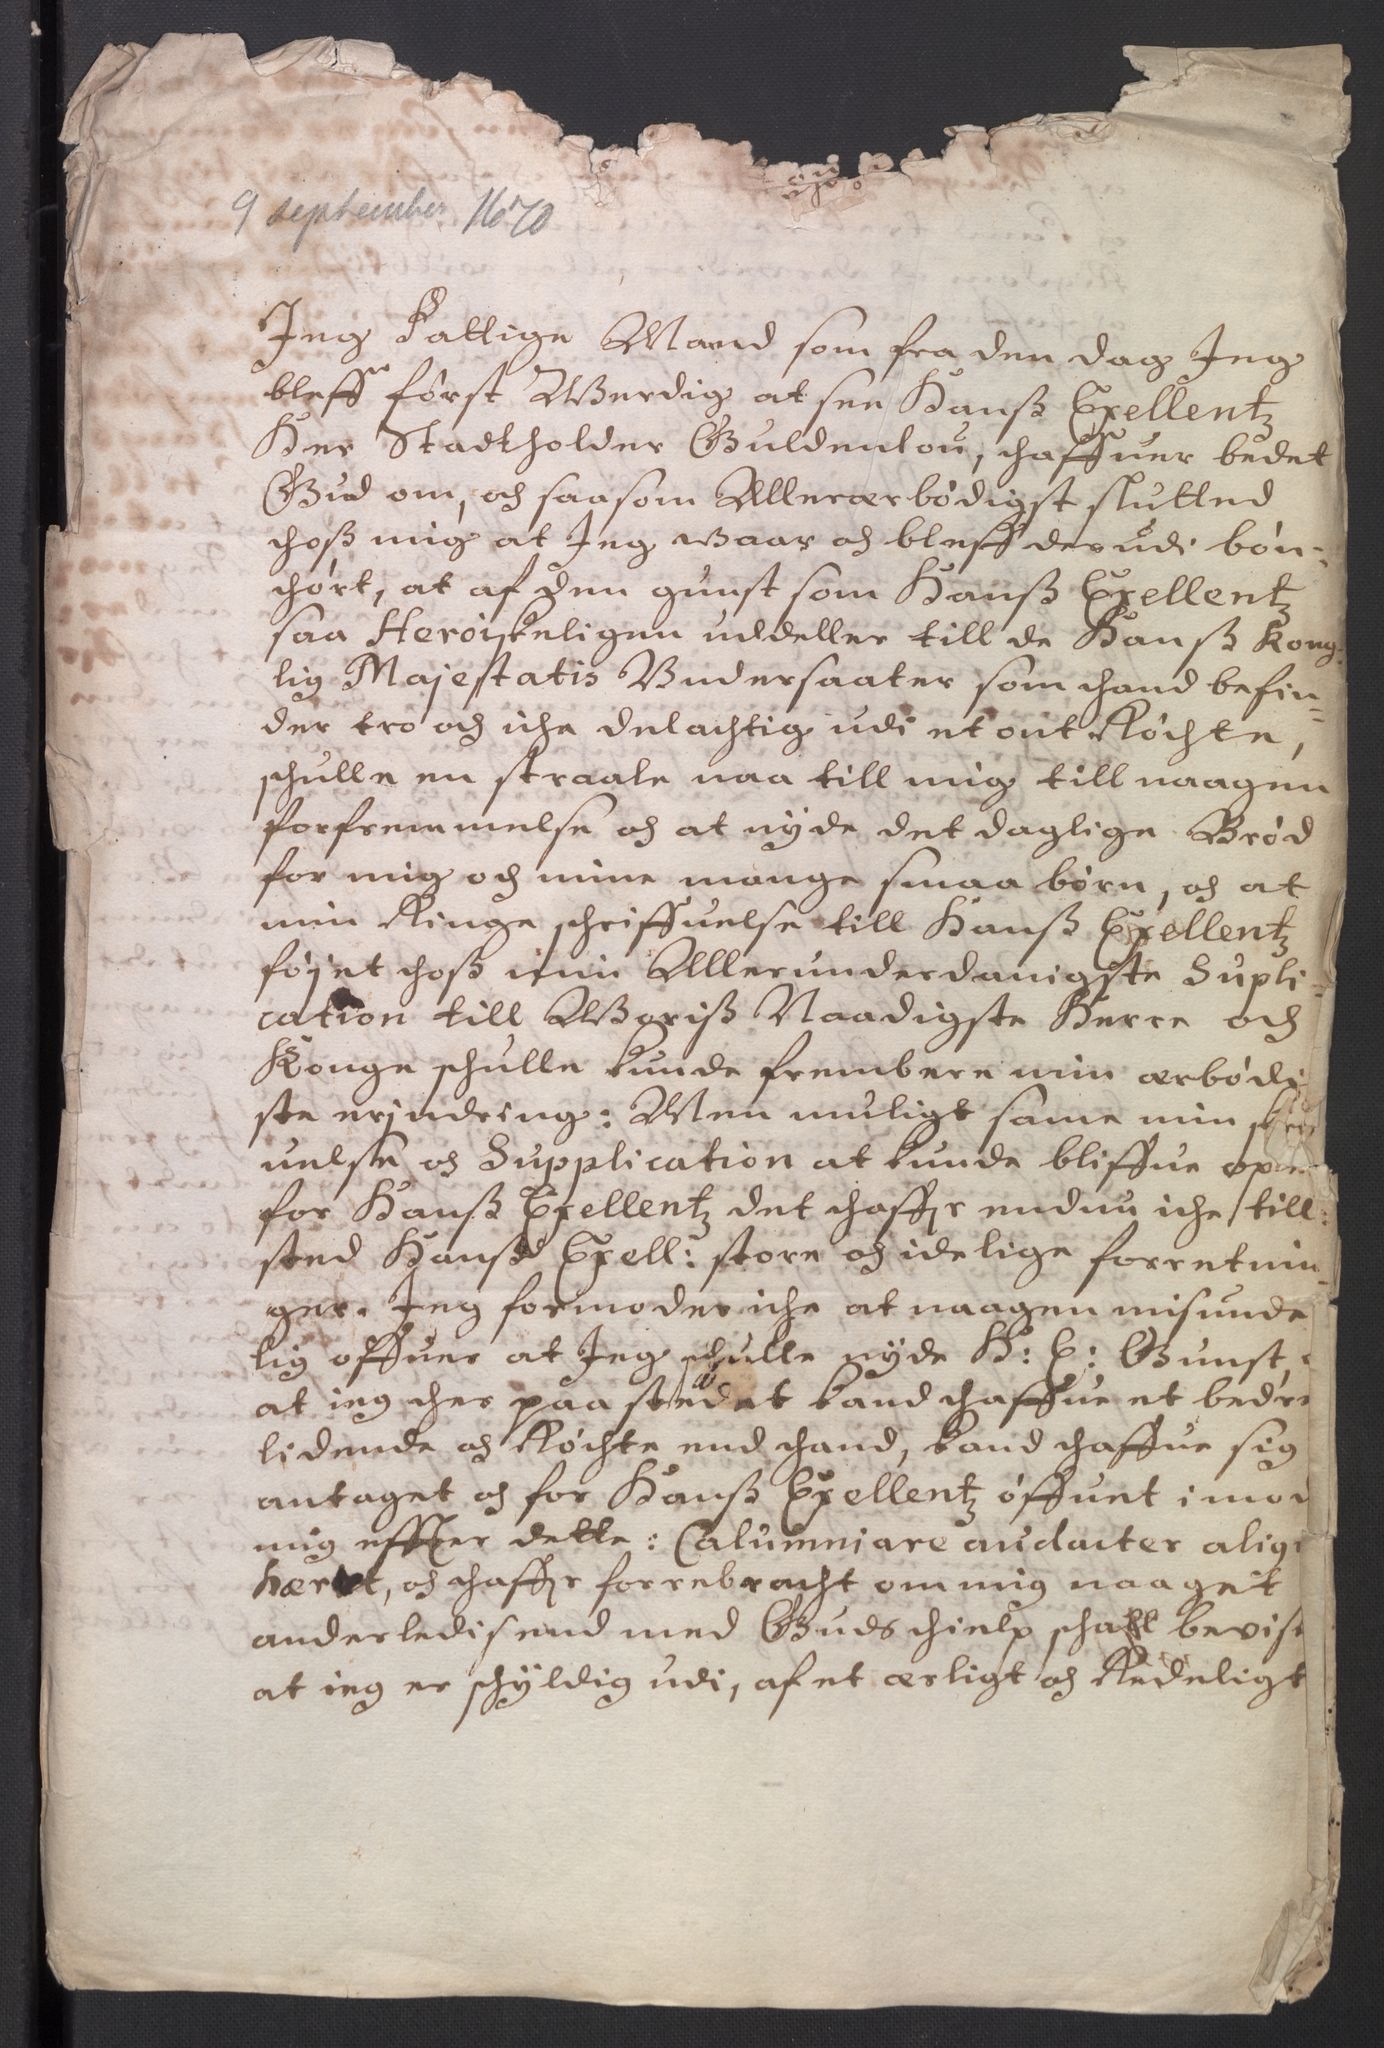 9 september 1670
Jeg Fattige Mand som fra den dag Jeg
bleff først Werdig at see Hanß Exellentz
Her Stadtholder Guldenlou, haffuer bedet
Gud om, och saasom Allerærbödigst slutted
hoß mig at Jeg waar och bleff der udi bön¬
hört, at af den gunst som Hanß Exellentz
saa Heröiskeligen uddeller till de Hanß Kong:
lig Majestatis Undersaater som hand befin¬
der tro och iche delachtig udi et ont Röchte,
schulle en straale naa till mig till naagen
forfremmelse och at nÿde det daglige Bröd
for mig och mine mange smaa börn, och at
min Ringe schriffuelse till Hanß Exellentz
föjet hoß min Allerunderdanigste Supli¬
cation till Woriß Naadigste Herre och
Konge schulle kunde frembere min ærbödi
ste erindring: Men muligt same min
uelse och Supplication at kunde bliffue
for Hanß Exellentz det haffr endnu iche till:
sted Hanß Exell: store och idelige forretnin¬
ger. Jeg formoder iche at naagen misunde
lig offuer at Jeg schulle nÿde H: E: Gunst,
at ieg her paa stedet kand haffue et bedre
lidende och Röchte end hand, kand haffue sig
antaget och for Hanß Exellentz öffuet imod
mig effter dette: Calumniare audacter aliqvi
hæret, och haffr forrebracht om mig naaget
anderledis end med Guds hielp schall bevise
at ieg er schÿldig udi, af et ærligt och Redeligt